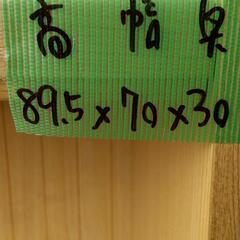 高 幅 奥
89.5×70×30